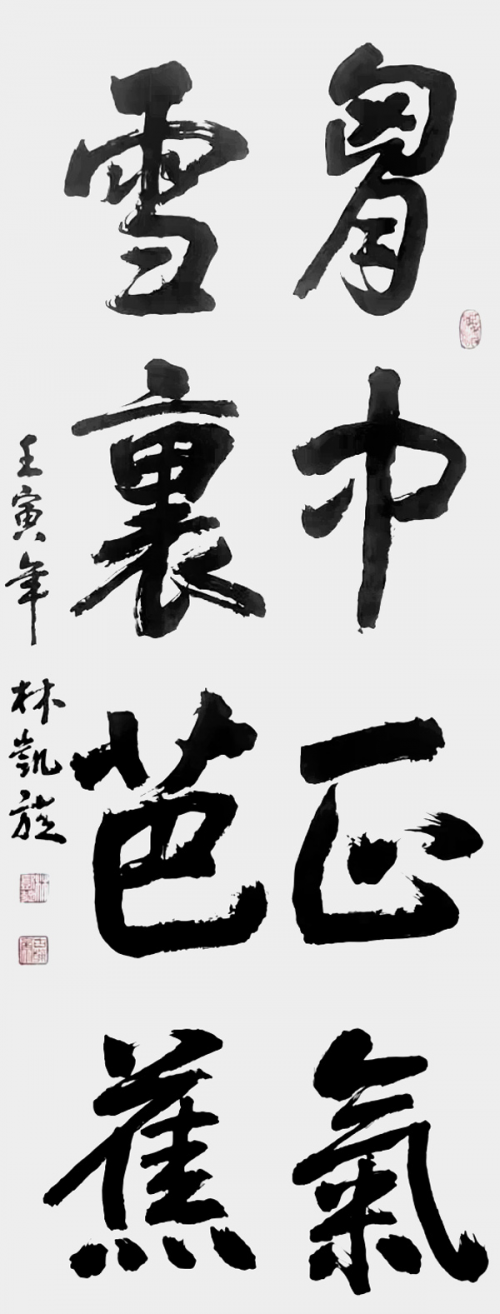 胷中正氣
雪裏芭蕉
壬寅年 林凱旋